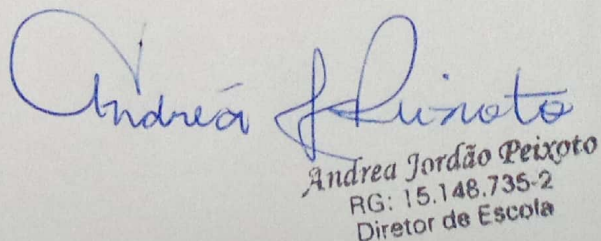 Andréa J Peixoto
Andrea Jordão Peixoto
RG: 15.148.735-2
Diretor de Escola